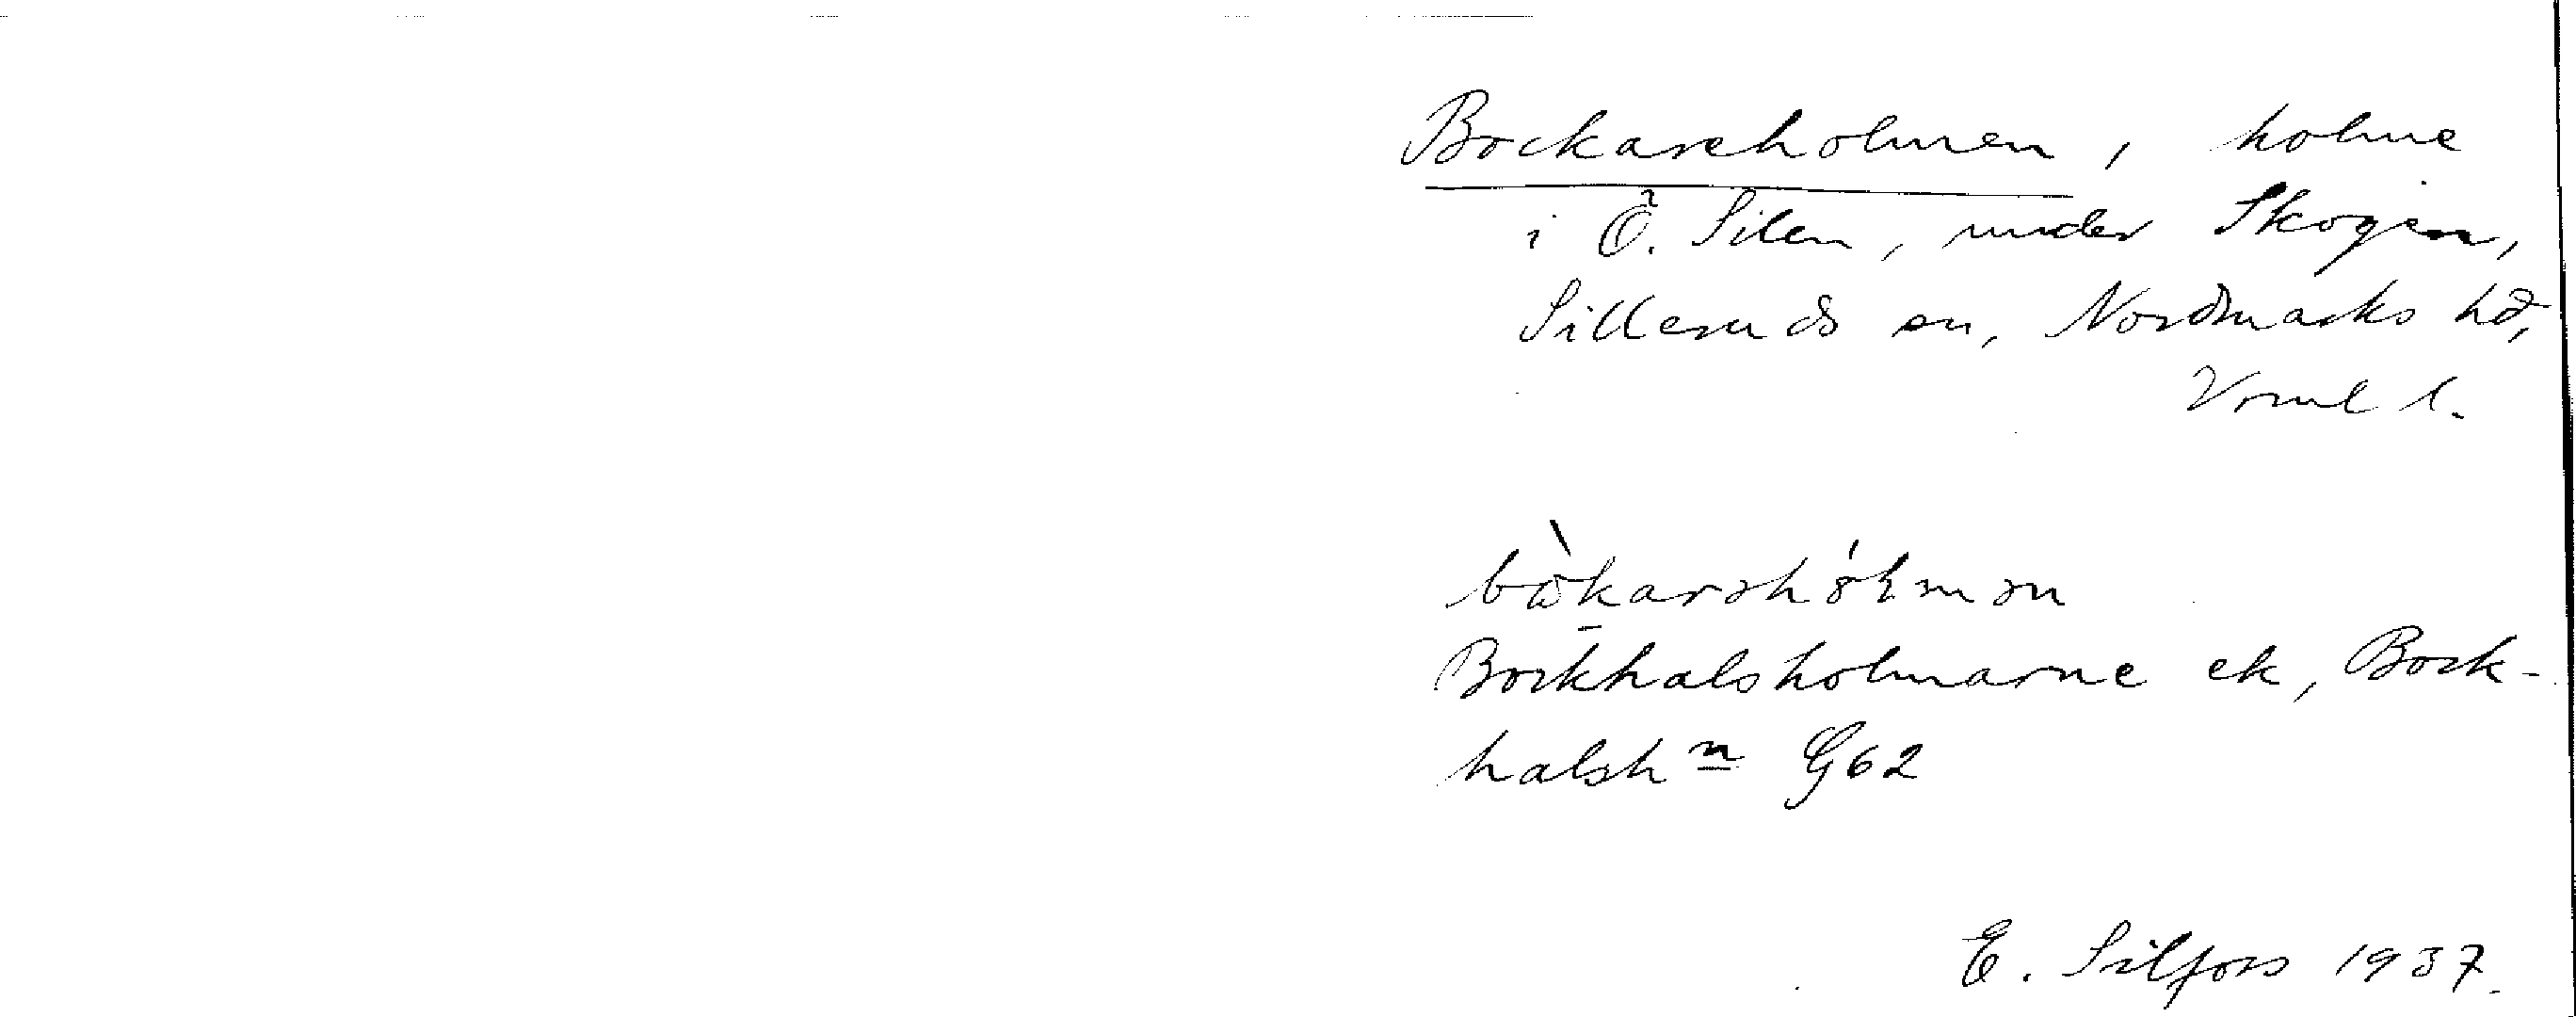 Bockareholmen, holme
i Ö. Silen, under Skogen,
Silleruds sn, Nordmarks hd,
Vrml l.
bòkarəhólmən
Bockhalsholmarne ek, Bock-
halshn G62
E. Silfors 1937.